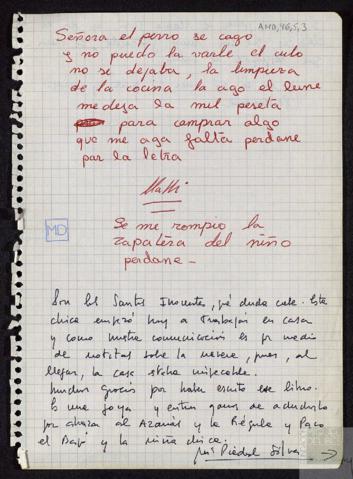 AMD, 46, 5, 3
Señora el perro se cago
y no puedo la varle el culo
no se dejaba, la limpiura
de la cocina la ago el lune
me deja la mil peseta
para comprar algo
que me aga falta perdane
par la letra
Se me rompio la
MD
zapatera del niño
perdane _
Son los Santos Inocentes, qué duda cabe. Esta
chica empezó hoy a trabajar en casa
y como nuestra comunicación es por medio
de notitas sobre la nevera, pues, al
llegar, la casa estaba impecable.
Muchas gracias por haber escrito ese libro.
Es una joya y entran ganas de
por abrazar al Azarías y la Régula y Paco
el Bajo y la niña chica.